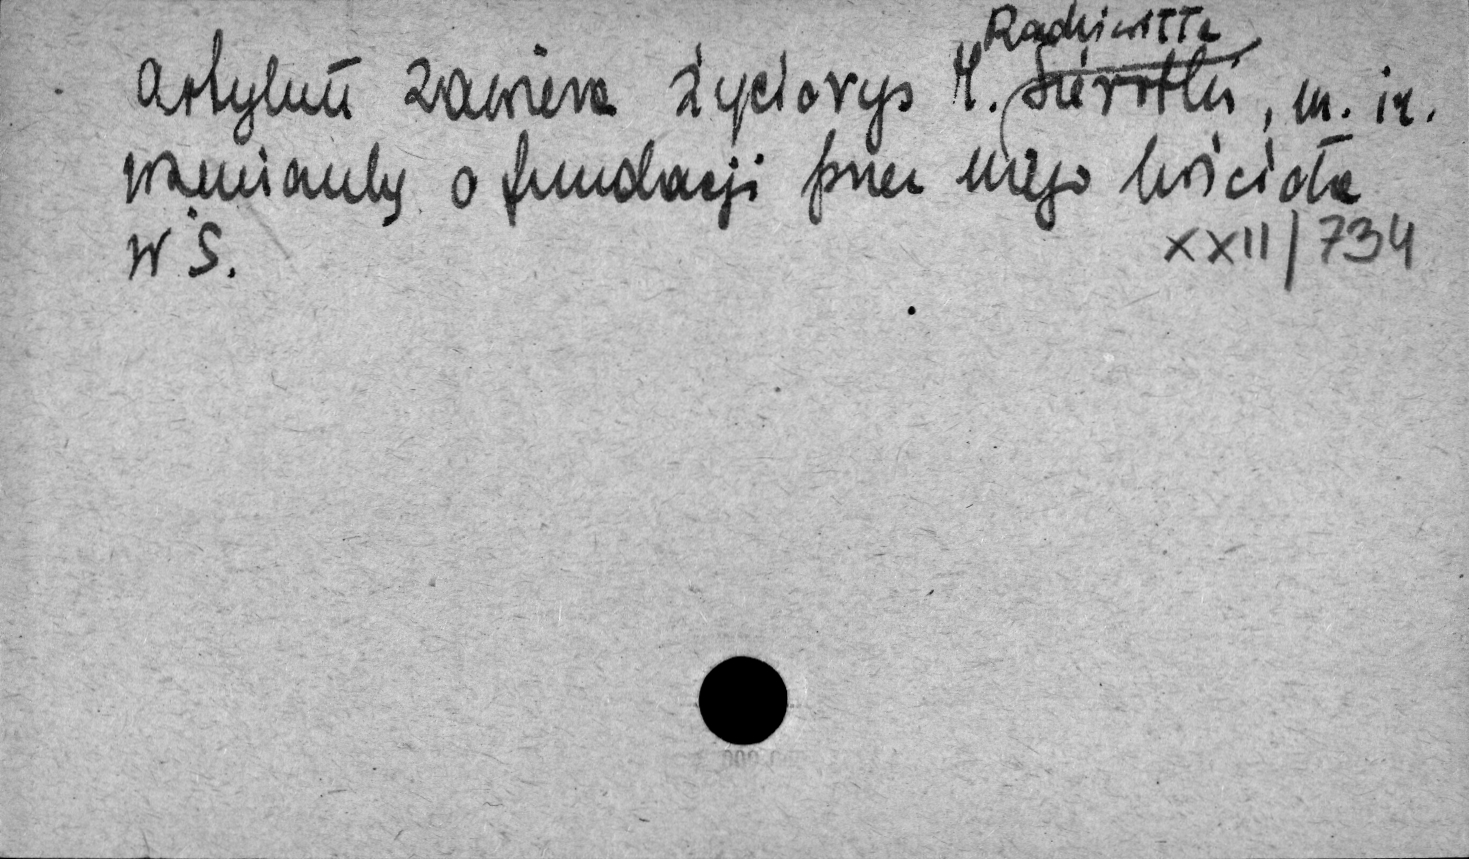 Radziwiłła
Artykuł zawiera życiorys M. Sierotki, m. in.
wzmiankę o fundacji przez niego kościoła
w Ś.
XXII/734